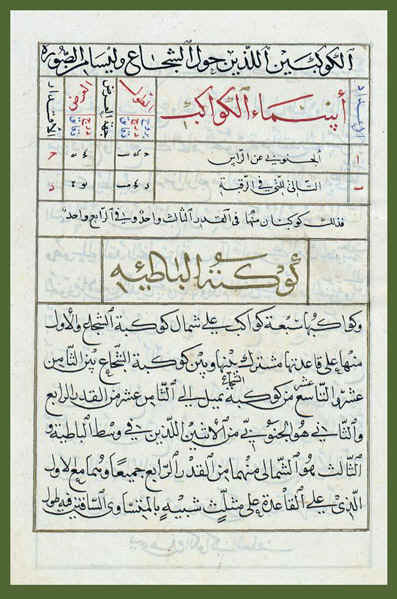 الكوكبين اللذين حول الشجاع وليسا من الصورة
الأعداد
أسماء الكواكب
الطول
بروج درج دقائق
جهة العرض
العرض
درج دقائق
الأقدار
الجنوبي عن الراس
التالي للتي في الرقبة
فذلك كوكبان منها في القدر الثالث واحد وفي الرابع واحد
كوكبة الباطية
وكواكبها سبعة كواكب على شمال كوكبة الشجاع والاول
منها على قاعدتها مشترك بينها وبين كوكبة الشجاع بين الثامن
عشر والتاسع عشر من كوكبة الشجاع يميل الى الثامن عشر من القدر الرابع
والثاني هو الجنوبي من الاثنين اللذين في وسط الباطية و
الثالث هو الشمالي منهما من القدر الرابع جميعا وهما مع الاول
الذي على القاعدة على مثلث شبيه بالمتساوى الساقين فيه طول